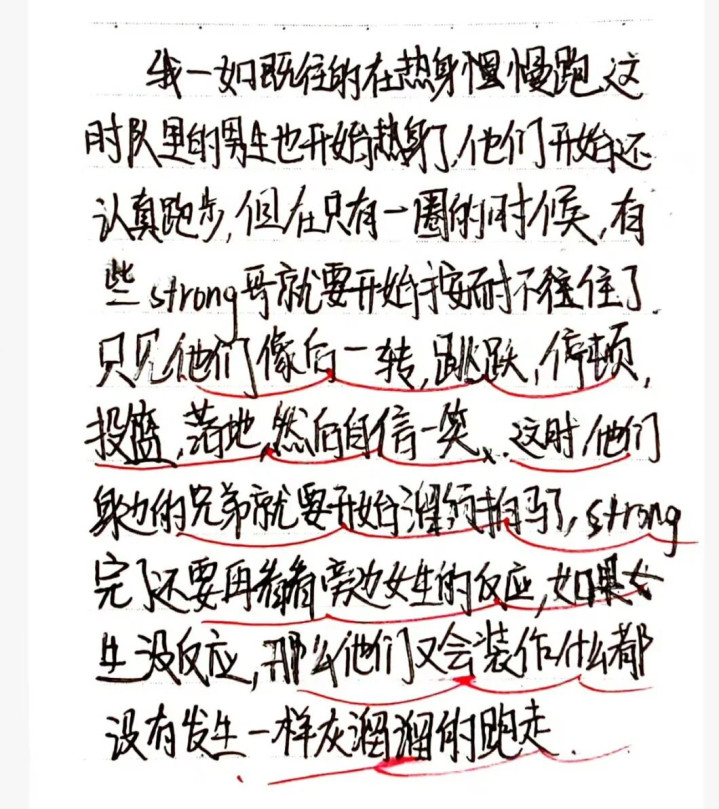 我一如既往的在热身慢慢跑,这
时队里的男生也开始热身了,他们开始还
认真跑步,但在只有一圈的时候,有
些strong哥就要开始按耐不住住了.
只见他们像后一转,跳跃,停顿,
投篮,落地,然后自信一笑、.这时,他们
身边的兄弟就要开始溜须拍马了,strong
完了还要再看看旁边女生的反应,如果女
生没反应,那么他们又会装作什么都
没有发生一样灰溜溜的跑走.